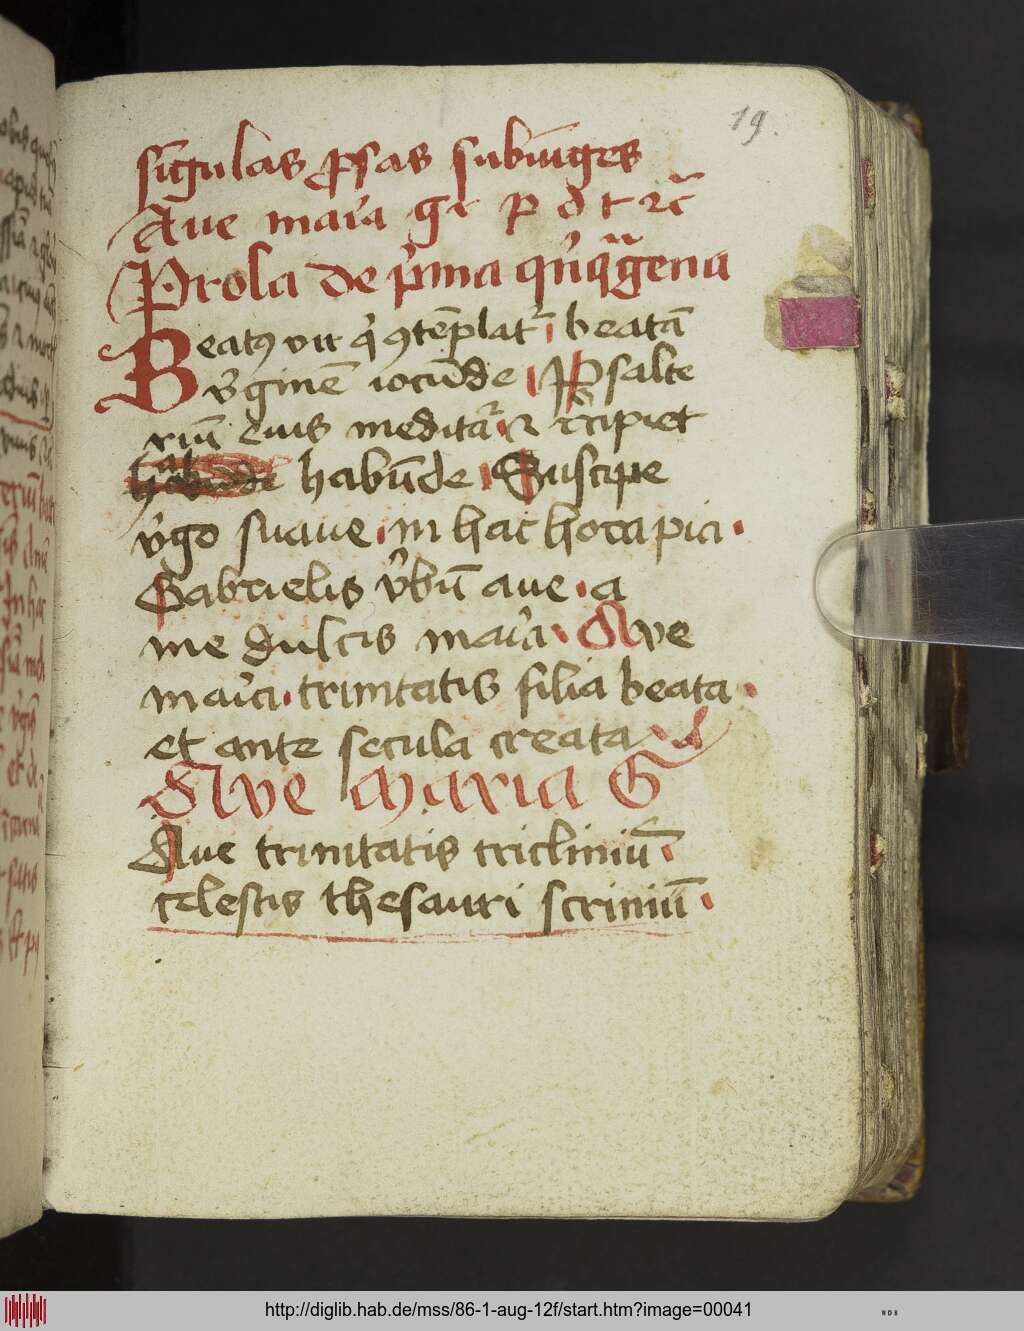 19.
sīgulas ꝓsas subiūges
Aue maria gr p d t ⁊c̄
Prola de p̄ma qn̄q̄gena
Beatꝰ vir q̄ ꝯtēplat᷑ beatā
v̄ginē iocūde Psalte
riū eius meditat᷑ ⁊ recipiet
habūde Suscipe
v̄go suaue in hac hora pia
Gabrielis v̄bū aue a
me dulcis maria Ave
maria trinitatis filia beata
et ante secula creata
Ave Maria G
Aue trinitatis tricliniū
celestis thesauri scriniū
http://diglib.hab.de/mss/86-1-aug-12f/start.htm?image=00041